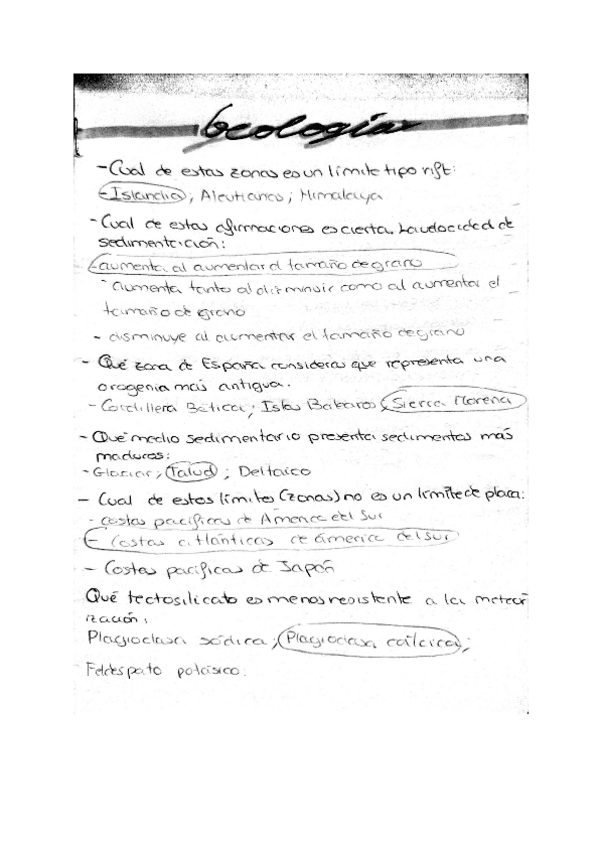 Geología
- Cual de estas zonas es un límite tipo rift:
- Islandia ; Aleutianas ; Himalaya
- Cual de estas afirmaciones es cierta. La velocidad de
sedimentación:
- aumenta al aumentar el tamaño de grano
- aumenta tanto al disminuir como al aumentar el
tamaño de grano
- disminuye al aumentar el tamaño de grano
- Qué zona de España consideras que representa una
orogenia más antigua.
- Cordillera Bética ; Islas Baleares ; Sierra Morena
- Qué medio sedimentario presenta sedimentos más
maduros:
- Glaciar ; Talud ; Deltaico
- Cual de estos límites (zonas) no es un límite de placa:
- costas pacíficas de América del Sur
- Costas atlánticas de América del sur
- Costas pacíficas de Japón
Qué tectosilicato es menos resistente a la meteori
zación:
Plagioclasa sódica ; Plagioclasa cálcica ;
Feldespato potásico.